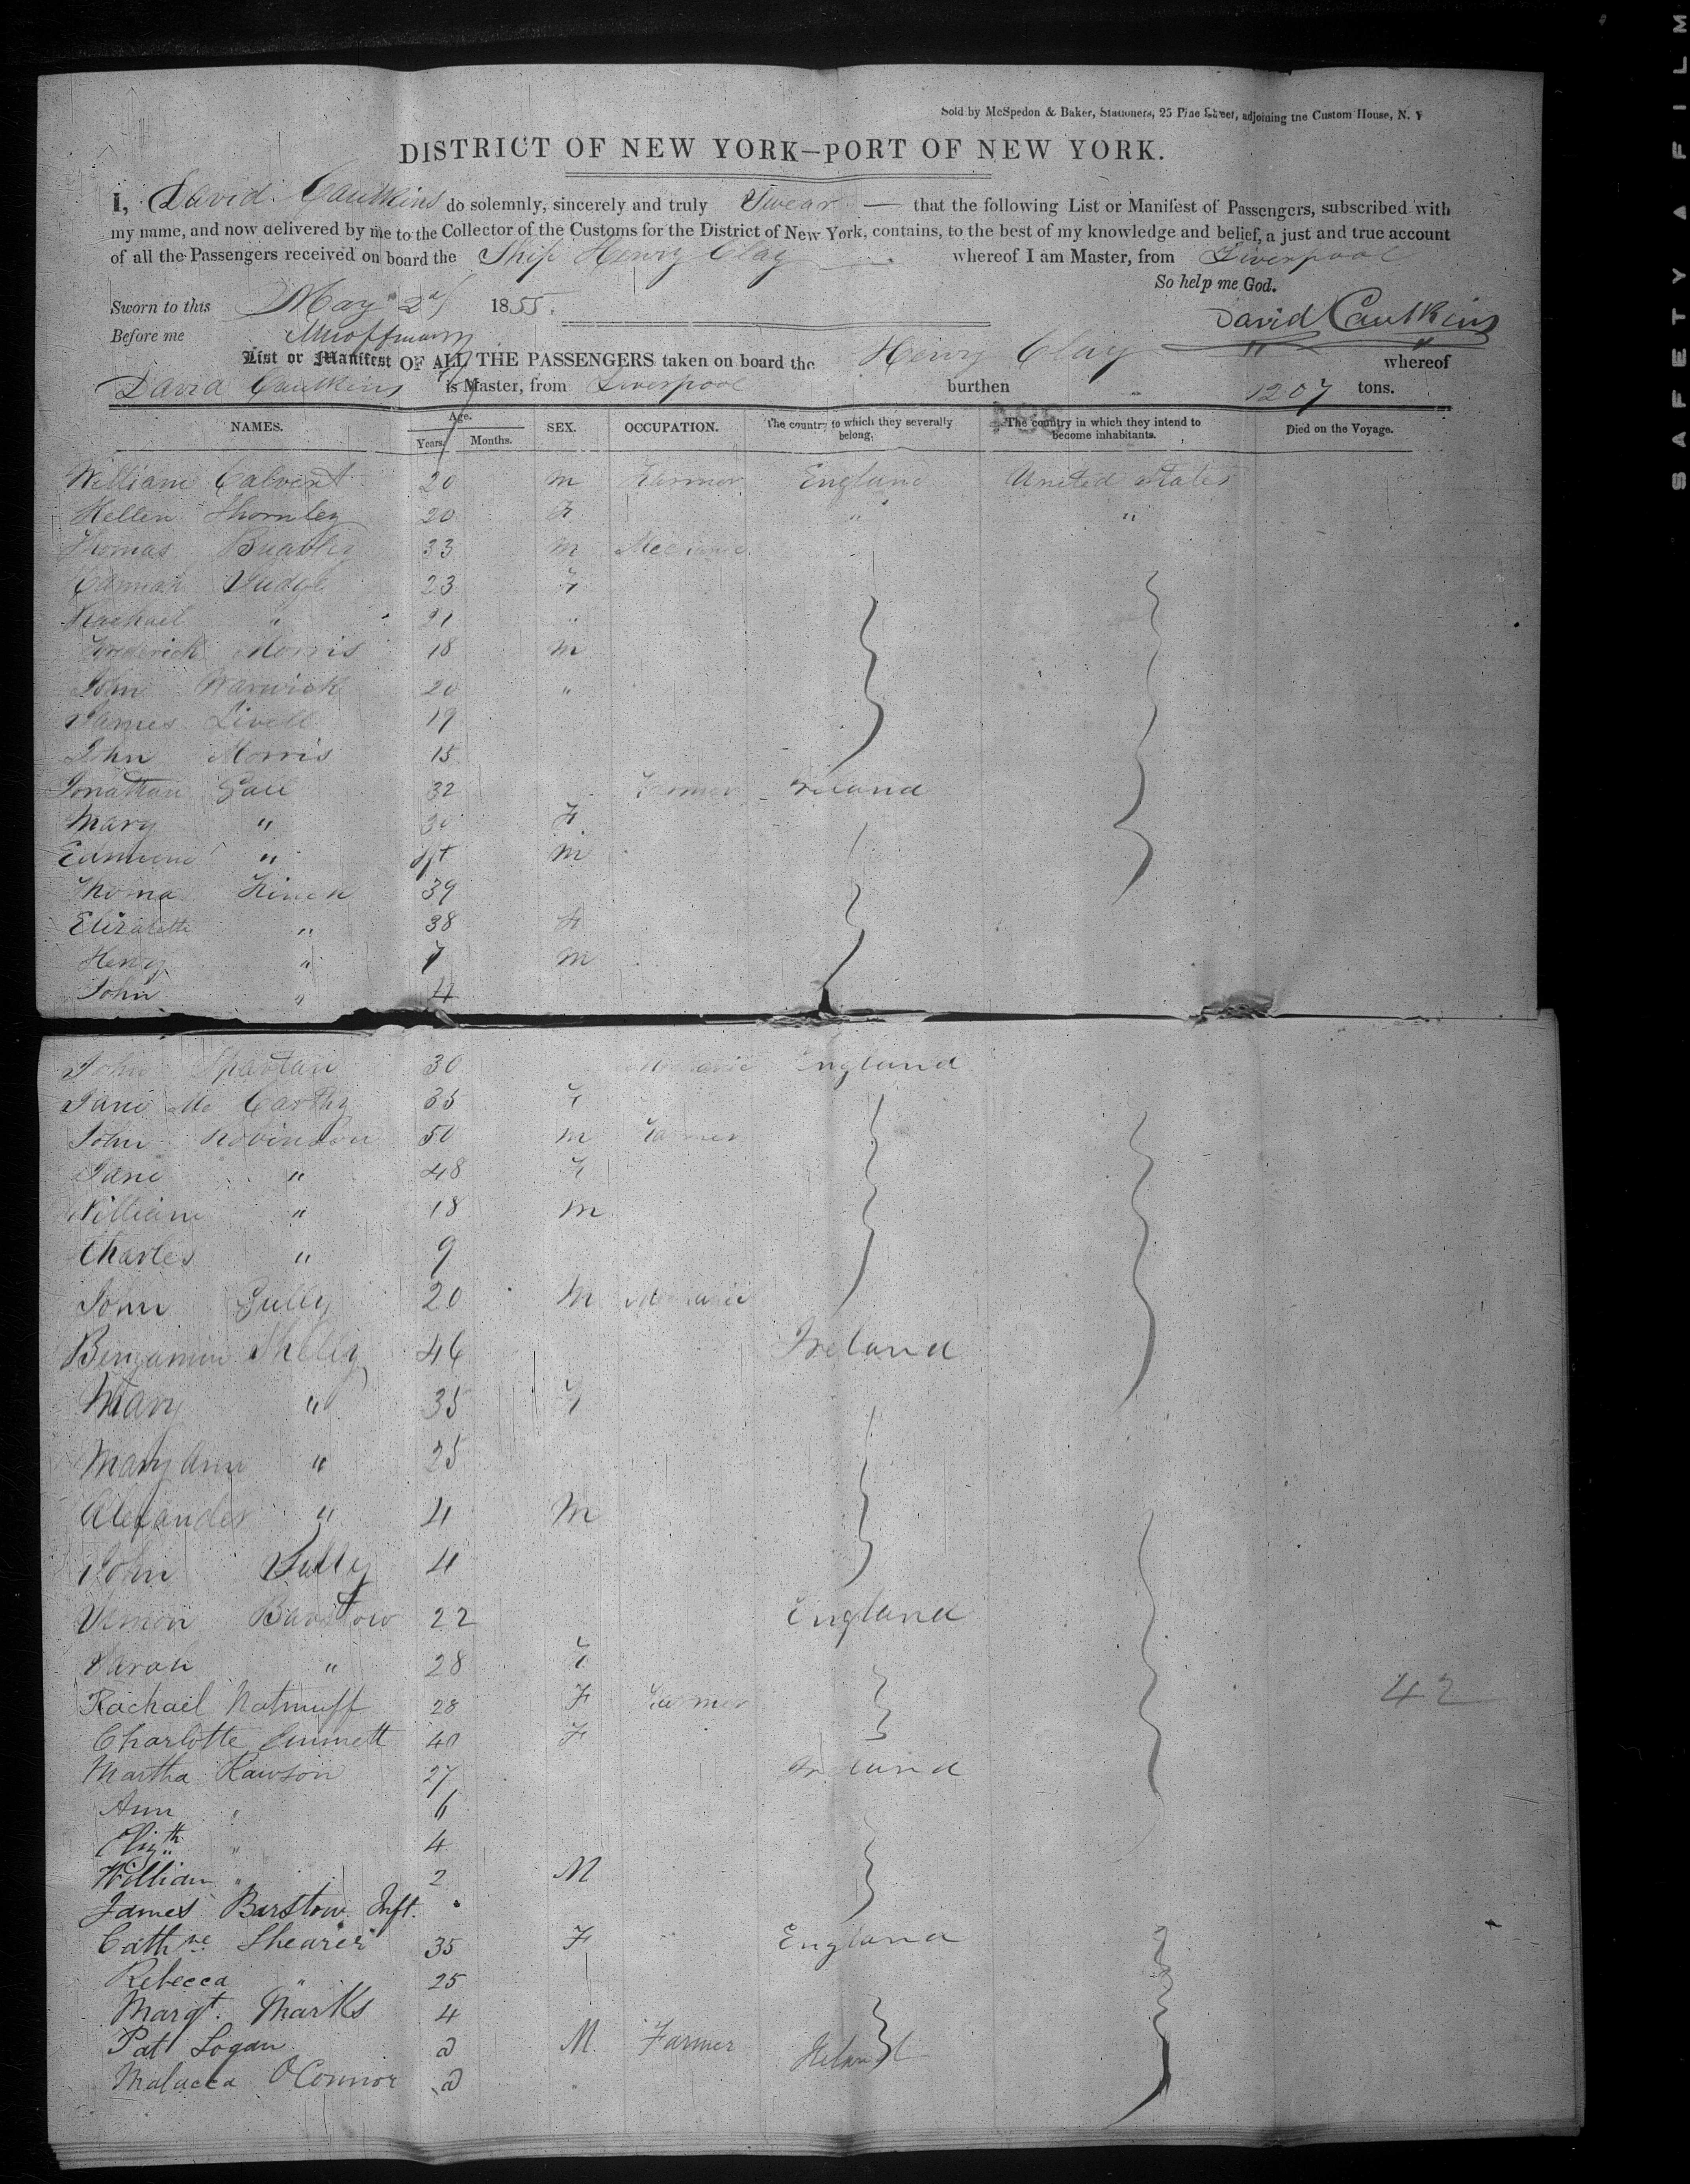 SAFETY A FILM
Sold by McSpedon & Baker, Stationers, 25 Pine Street, adjoining the Custom House, N. Y
DISTRICT OF NEW YORK—PORT OF NEW YORK.
I, David Caulkins do solemnly, sincerely and truly Swear — that the following List or Manifest of Passengers, subscribed with
my name, and now delivered by me to the Collector of the Customs for the District of New York, contains, to the best of my knowledge and belief, a just and true account
of all the Passengers received on board the Ship Henry Clay whereof I am Master, from Liverpool
So help me God.
Sworn to this May 2d 1855.
David Caulkins
Before me
List or Manifest OF ALL THE PASSENGERS taken on board the Henry Clay " whereof
David Caulkins is Master, from Liverpool burthen " 1207 tons.
NAMES. Age. Years. Months. SEX. OCCUPATION. The country to which they severally belong. The country in which they intend to become inhabitants. Died on the Voyage.
William Calvert 20 m Farmer England United States
Hellen Thornley 20 F " "
Thomas 33 m Mechanic
Hannah Judge 23 F
Rachael " 21 "
Frederick Morris 18 m
John Warwick 20 "
James Livell 19
John Morris 15
Jonathan Gall 32 Farmer Ireland
Mary " 30 F
Edmund " Ift m
Thoma 39
Elizabeth " 38 F
Henry " 7 m
John " 4
John Spartan 30 Mechanic England
Jane Mc Carthy 35 F
John Robinson 50 m Farmer
Jane " 48 F
William " 18 m
Charles " 9
John Gully 20 m Mechanic
Benjamin Shelly 46 Ireland
Mary " 35 F
Mary Ann " 25
Alexander " 4 m
John 4
Barstow 22 England
Sarah " 28 F
Rachael Natmuff 28 F Farmer 42
Charlotte Emmett 40 F
Martha Rawson 27 Ireland
Ann " 6
Elizth " 4
William " 2 M
James Barstow Inft. "
Cathne Shearer 35 F England
Rebecca " 25
Margt. Marks 4
Pat Logan a M. Farmer Ireland
Malacca O'Connor a "